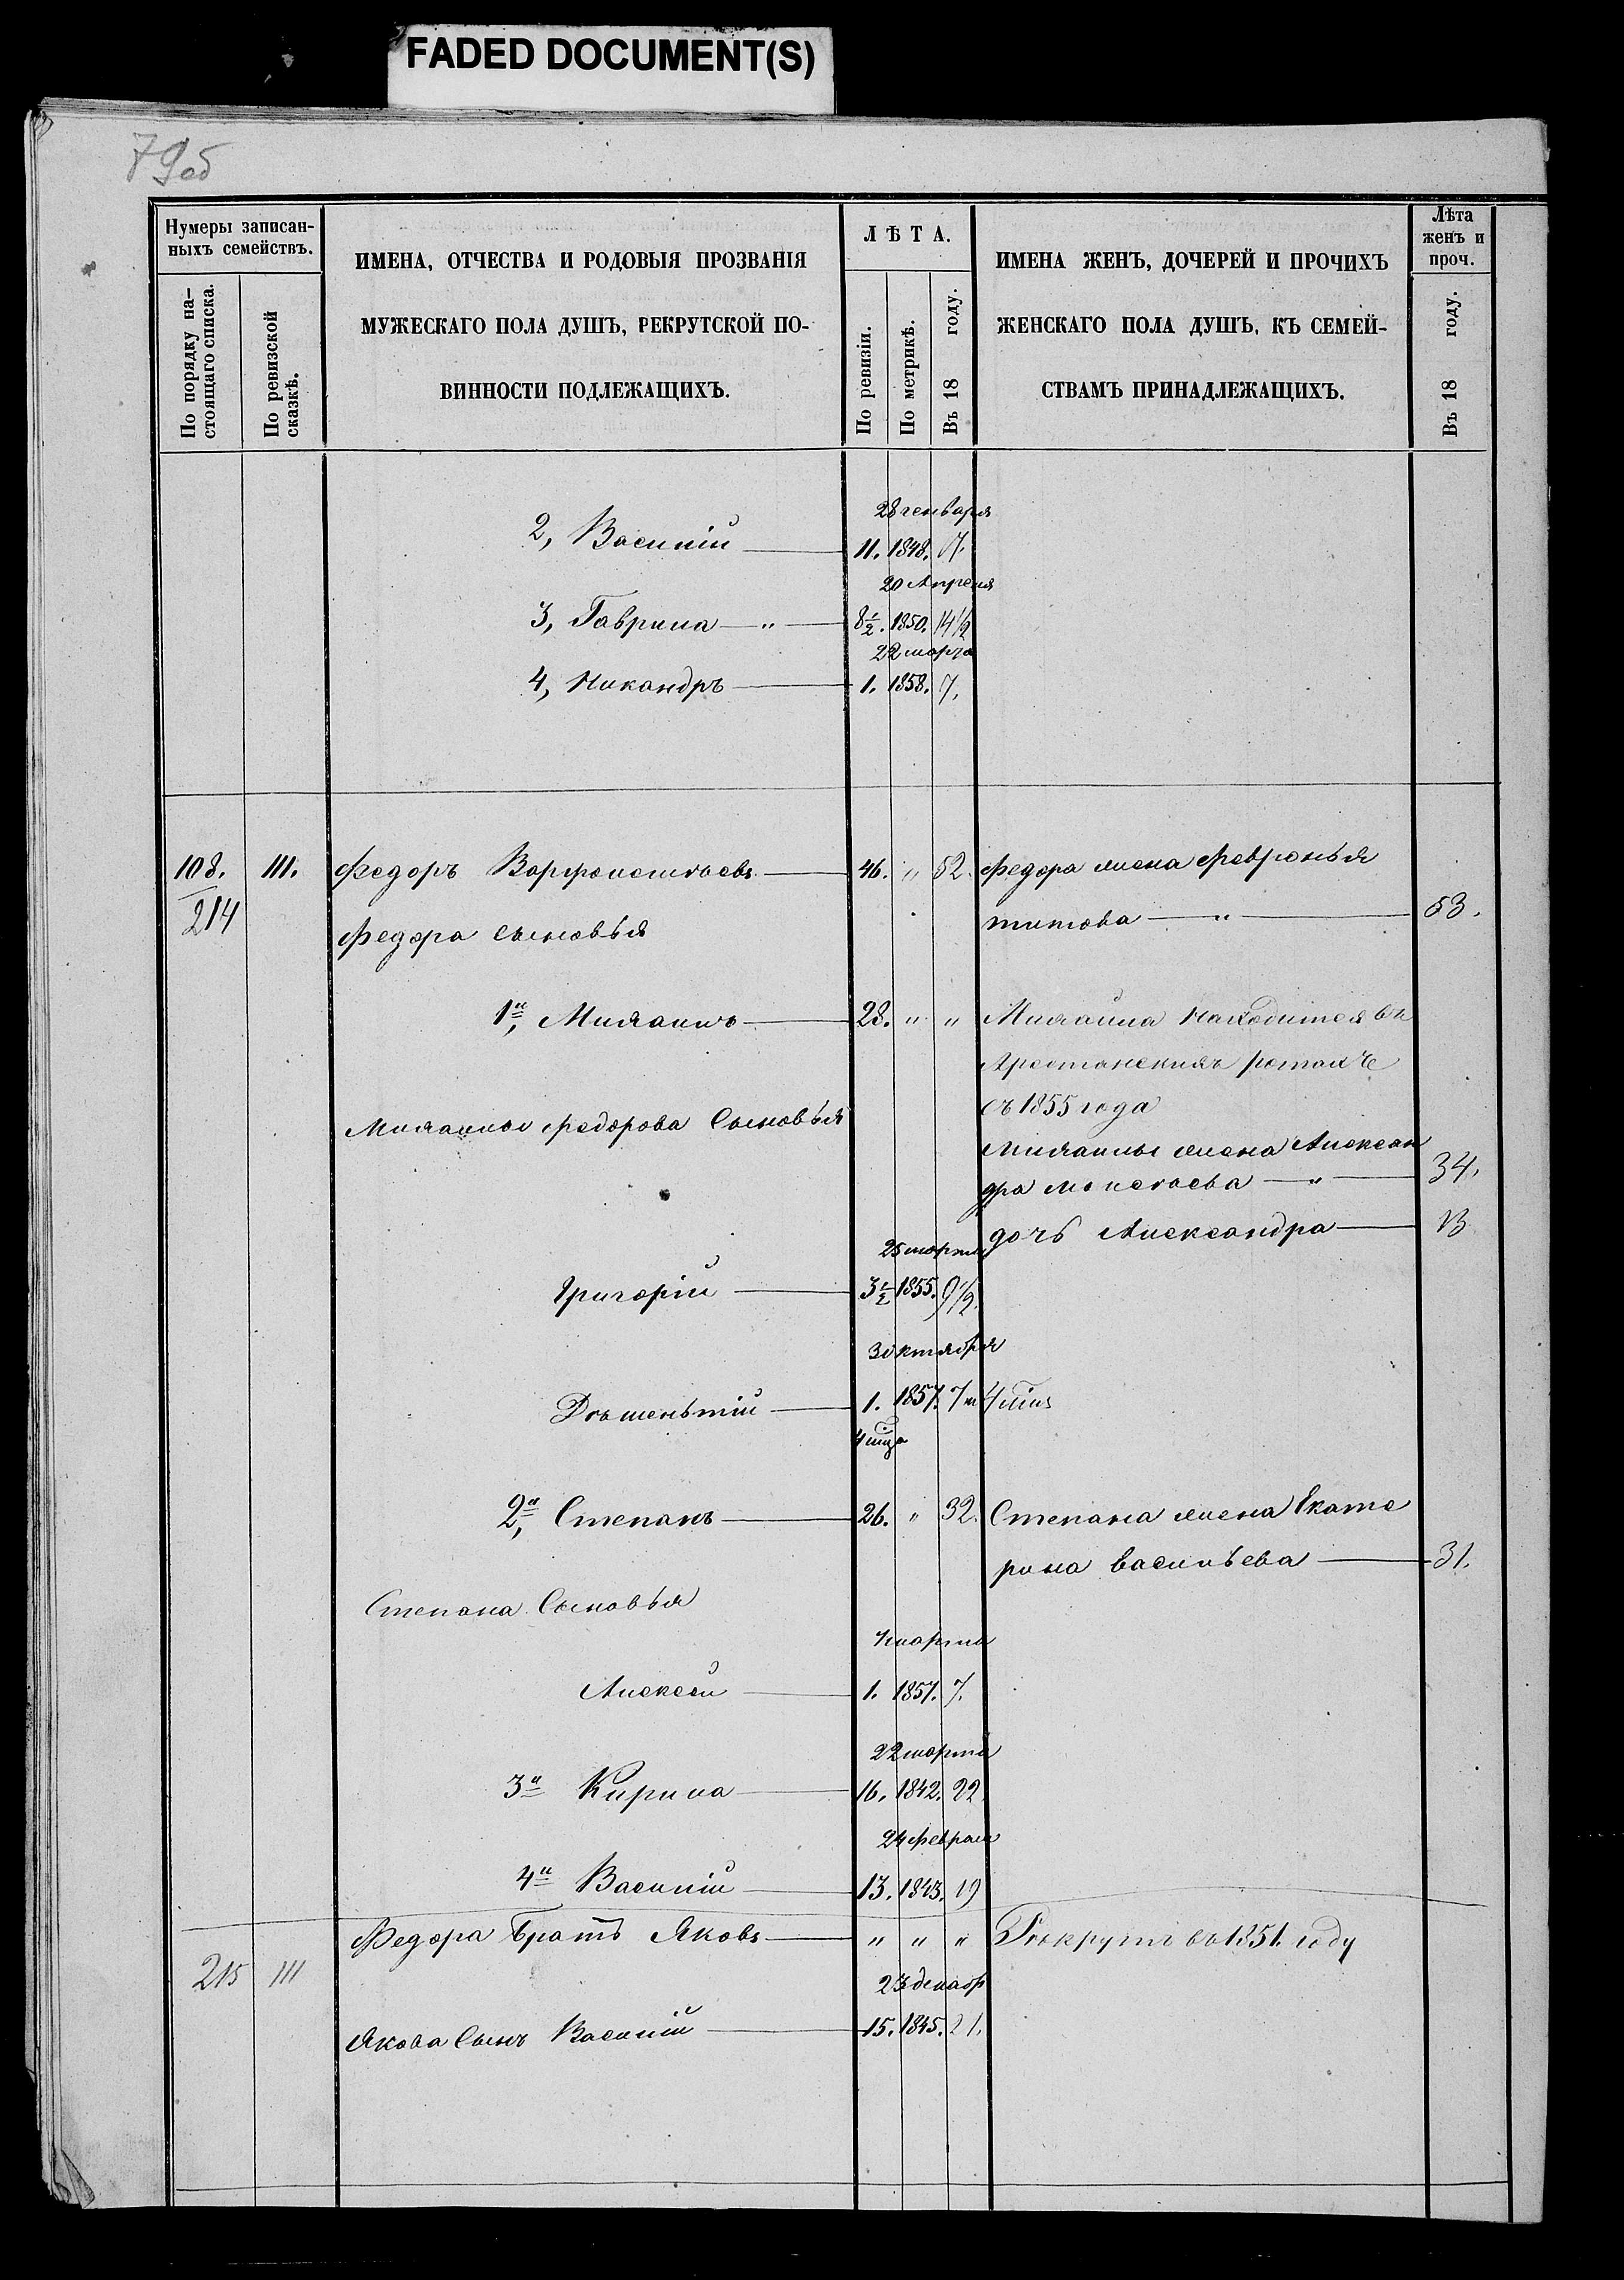 FADED DOCUMENT(S)
79об
Нумеры записан-
ныхъ семействъ.
По порядку на-
стоящаго списка.
По ревизской
сказкѣ.
ИМЕНА, ОТЧЕСТВА И РОДОВЫЯ ПРОЗВАНІЯ
МУЖЕСКАГО ПОЛА ДУШЪ, РЕКРУТСКОЙ ПО-
ВИННОСТИ ПОДЛЕЖАЩИХЪ.
ЛѢТА.
По ревизіи.
По метрикѣ.
Въ 18 году.
ИМЕНА ЖЕНЪ, ДОЧЕРЕЙ И ПРОЧИХЪ
ЖЕНСКАГО ПОЛА ДУШЪ, КЪ СЕМЕЙ-
СТВАМЪ ПРИНАДЛЕЖАЩИХЪ.
Лѣта
женъ и
проч.
Въ 18 году.
28 генваря
2, Василій 11. 1848. 17.
20 Апреля
3, Гаврила — " — 8½. 1850. 14½
22 марта
4, Никандръ 1. 1858. 7.
108. 111. Федоръ Варфоломѣевъ 46. " 52. Федора жена Февронья
214 Федора сыновья титова — " — 53.
1й, Михаилъ 28. " " Михаила находится въ
Арестанскихъ ротахъ
съ 1855 года
Михаилы федорова Сыновья
Михаилы жена Алексан
дра Моисѣева — " — 34.
дочь Александра 13
25 марта
Григорій 3½ 1855. 9½.
3 октября
Дементій 1. 1857. 7 и 4 мѣс
4 мца
2й, Степанъ 26. " 32. Степана жена Екате
рина васильева 31.
Степана Сыновья
4 марта
Алексѣй 1. 1857. 7.
22 марта
3й Кирила 16. 1842. 22.
24 феврал
4й Василій 13. 1845. 19
Федора Братъ Яковъ " " " Рекрутъ въ 1851. году
215 111
23 декабр
Якова Сынъ Василій 15. 1845. 21.